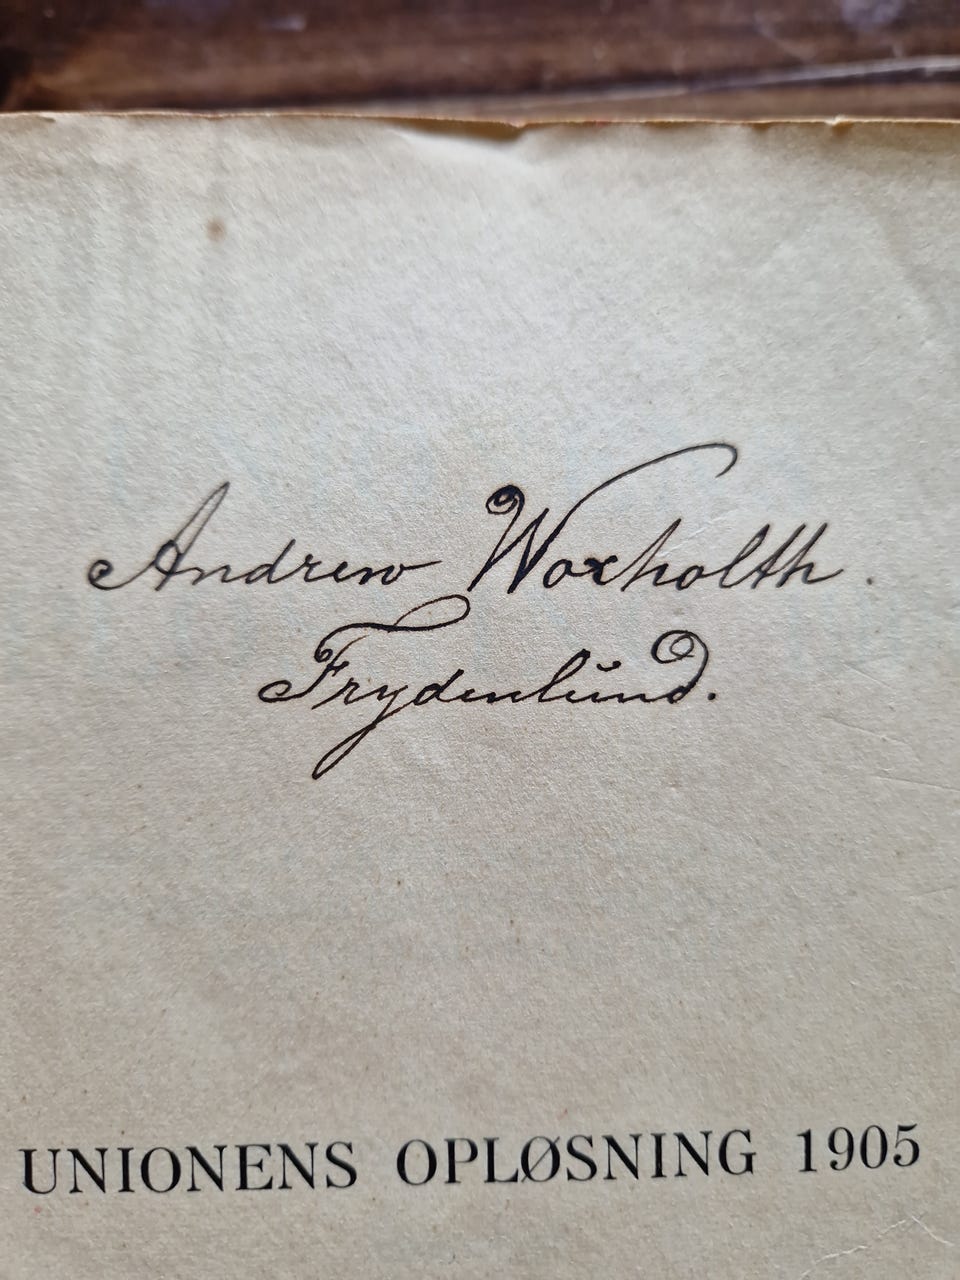 Andrew Woxholth.
Frydenlund.
UNIONENS OPLØSNING 1905